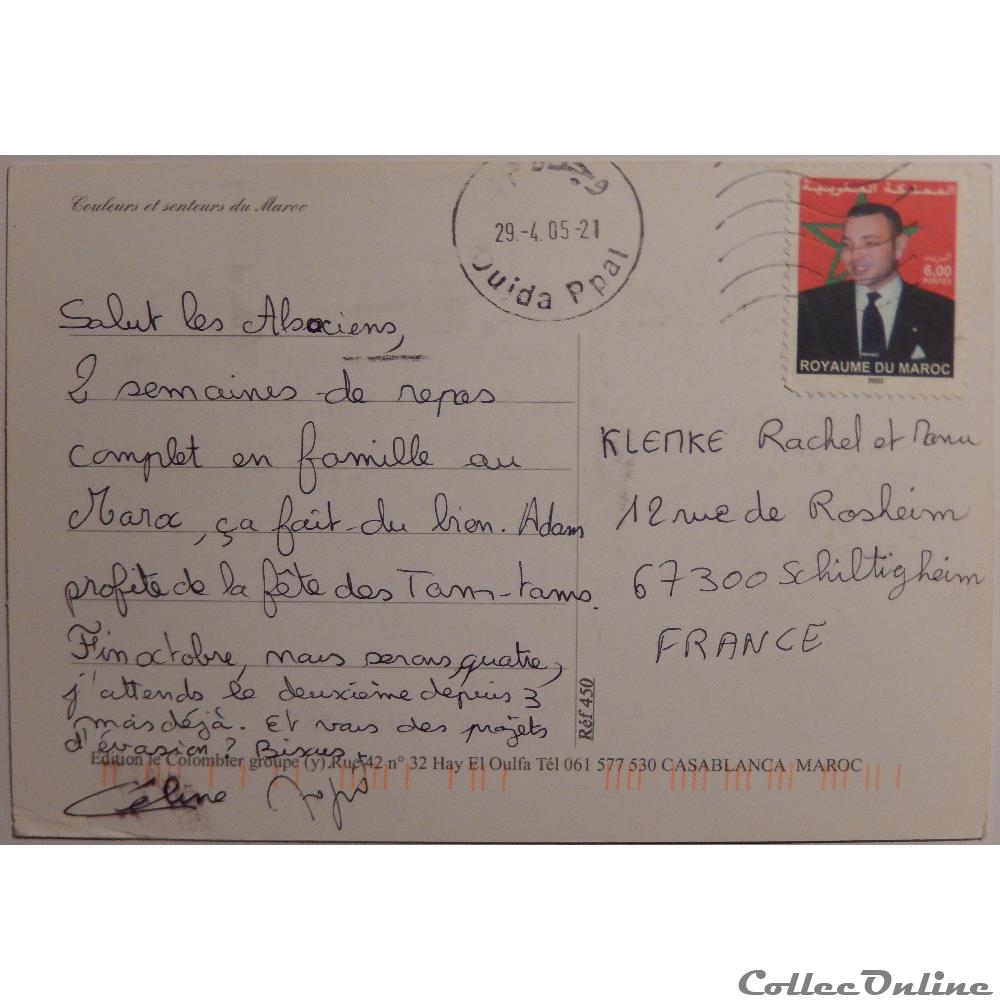 Couleurs et senteurs du Maroc
وجدة
29.-4.05-21
Oujda Ppal
المملكة المغربية
البريد
6,00
POSTES
ROYAUME DU MAROC
2002
Salut les Alsaciens,
2 semaines de repos
complet en famille au
Maroc, ça fait du bien. Adam
profite de la fête des Tam-tams.
Fin octobre, nous serons quatre,
j'attends le deuxième depuis 3
mois déjà. Et vous des projets
d'évasion? Bisous.
Céline
KLEMKE Rachel et Manu
12 rue de Rosheim
67300 Schiltigheim
FRANCE
Réf 450
Edition le Colombier groupe (y) Rue 42 n° 32 Hay El Oulfa Tél 061 577 530 CASABLANCA MAROC
CollecOnline